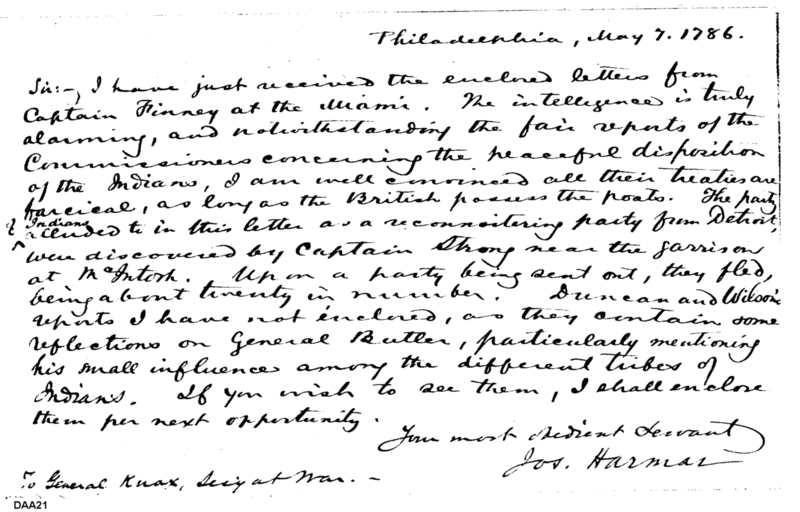 Philadelphia, May 7. 1786.
Sir:-, I have just received the enclosed letters from
Captain Finney at the Miami. The intelligence is truly
alarming, and notwithstanding the fair reports of the
Commissioners concerning the peaceful disposition
of the Indians, I am well convinced all their treaties are
farcical, as long as the British possess the posts. The party
of Indians
alluded to in this letter as a reconnoitering party from Detroit,
were discovered by Captain Strong near the garrison
at McIntosh. Upon a party being sent out, they fled,
being about twenty in number. Duncan and Wilson's
reports I have not enclosed, as they contain some
reflections on General Butler, particularly mentioning
his small influence among the different tribes of
Indians. If you wish to see them, I shall enclose
them per next opportunity.
Your most obedient Servant
Jos. Harmar
To General Knox, Secy at War. -
DAA21